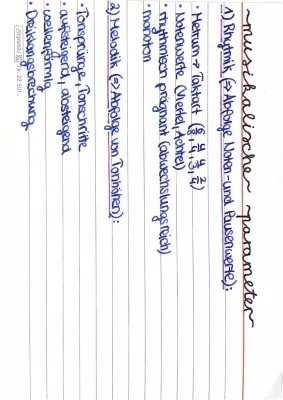 ~musikalische~parameter
1) Rhythmik (=> Abfolge Noten- und Pausenwerte):
• Metrum → Taktart (6/8, 4/4, 3/4, 2/4)
• Notenwerte (Viertel, Achtel)
• rhythmisch prägnant (abwechslungsreich)
• monoton
2) Melodik (=> Abfolge von Tonhöhen):
• Tonsprünge, Tonschritte
• aufsteigend, absteigend
• wellenförmig
• Dreiklangsbrechung